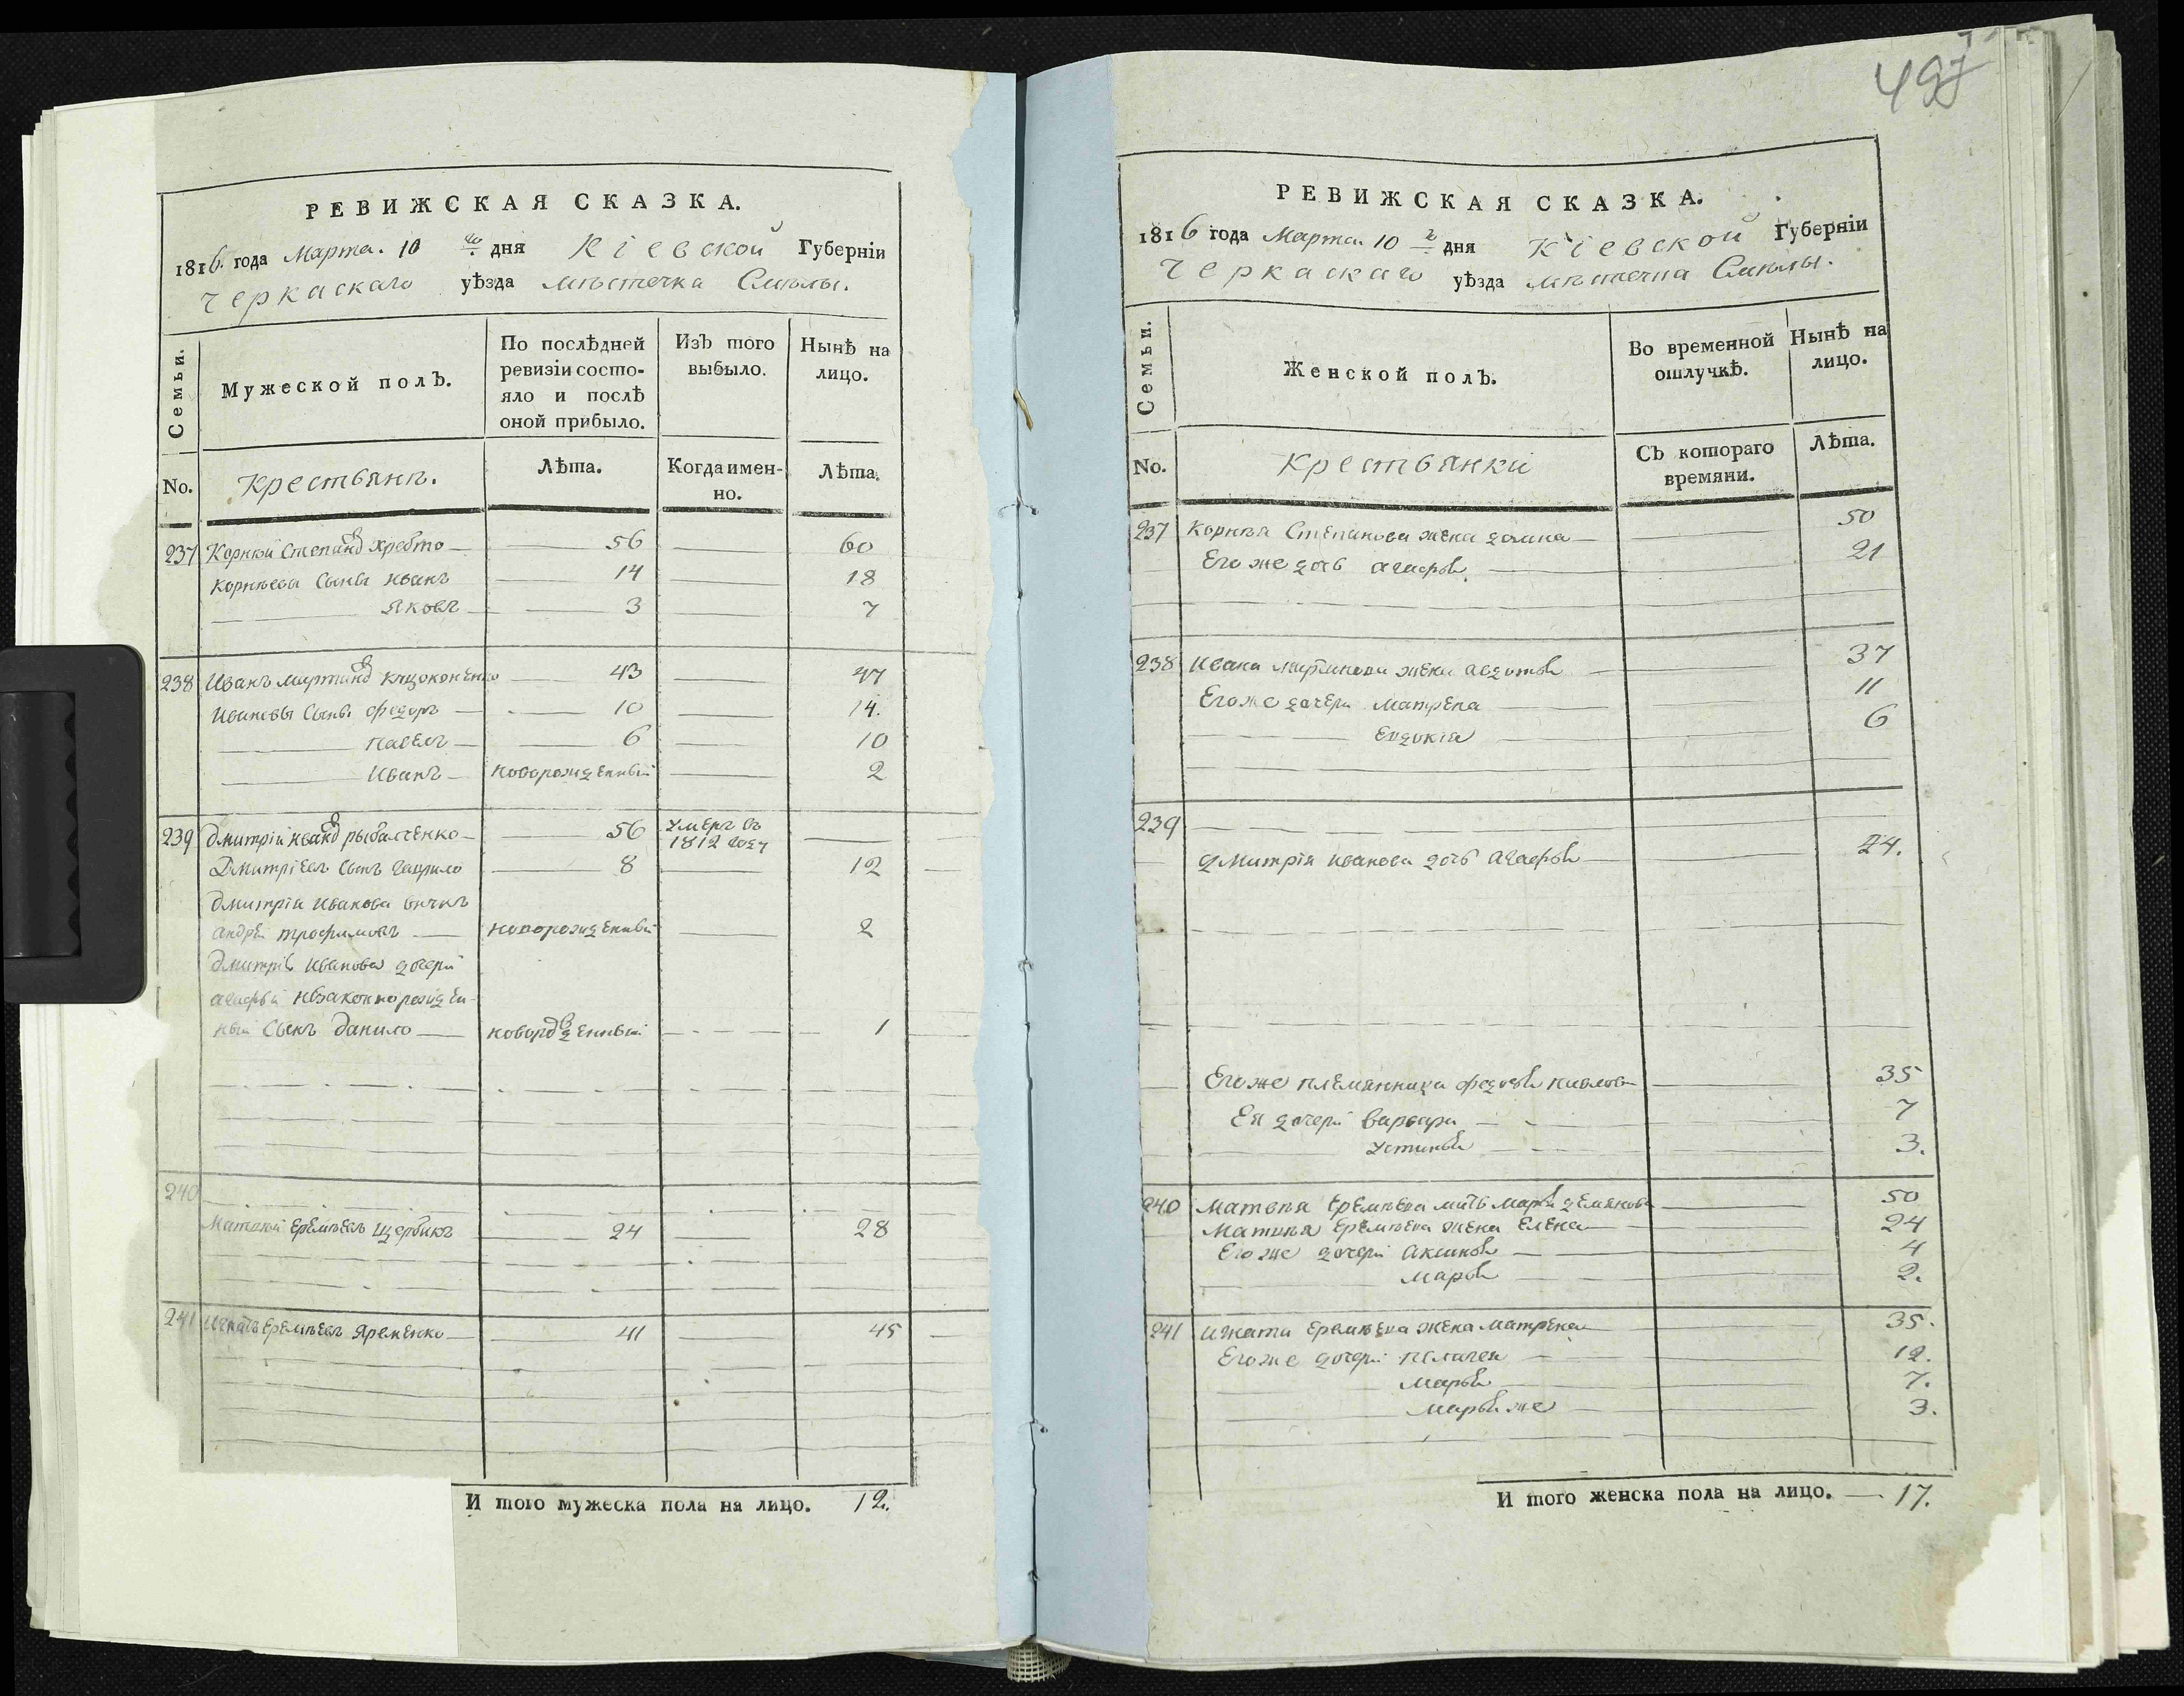 497
РЕВИЖСКАЯ СКАЗКА.
1816. года Марта. 10 го дня Кіевской Губерніи
Черкаскаго уѣзда мѣстечка Смѣлы.
Семьи.
Мужеской полЪ.
По послѣдней ревизіи состояло и послѣ оной прибыло.
ИзЪ того выбыло.
Нынѣ на лицо.
No.
Крестьянъ.
Лѣта.
Когда именно.
Лѣта.
237 Корнѣй Степановъ Хребто — 56 — 60
Корнѣевы Сыны Иванъ — 14 — 18
Яковъ — 3 — 7
238 Иванъ Мартиновъ — 43 — 47
Ивановы Сыны Федоръ — 10 — 14.
Павелъ — 6 — 10
Иванъ — новорожденный — 2
239 Дмитрій Ивановъ Рыбалченко — 56 умеръ въ 1812 году —
Дмитріевъ Сынъ Гаврило — 8 — 12
Дмитрія Иванова внукъ
Андрей Трофимовъ — новорожденный — 2
Дмитрія Иванова дочери
Агафьи незаконнорожден-
ный Сынъ Данило — новорожденный — 1
240
Матвѣй Еремѣевъ Щербакъ — 24 — 28
241 Игнатъ Еремѣевъ Яременко — 41 — 45
И того мужеска пола на лицо. 12.
РЕВИЖСКАЯ СКАЗКА.
1816 года Марта 10 го дня Кіевской Губерніи
Черкаскаго уѣзда мѣстечка Смѣлы.
Семьи.
Женской полЪ.
Во временной отлучкѣ.
Нынѣ на лицо.
No.
Крестьянки
СЪ котораго времяни.
Лѣта.
237 Корнѣя Степанова жена Домна — 50
Его же дочь Агафья. — 21
238 Ивана Мартинова жена Авдотья — 37
Его же дочери Матрена — 11
Евдокія — 6
239
Дмитрія Иванова дочь Агафья — 24.
Его же племянница Федосья Павлова — 35
Ея дочери Варвара — 7
Устинья — 3.
240 Матвѣя Еремѣева мать Марья Демянова — 50
Матвѣя Еремѣева жена Елена — 24
Его же дочери Аксинья — 4
Марья — 2.
241 Игната Еремѣева жена Матрена — 35.
Его же дочери Пелагея — 12.
Марья — 7.
Марья же — 3.
И того женска пола на лицо. — 17.